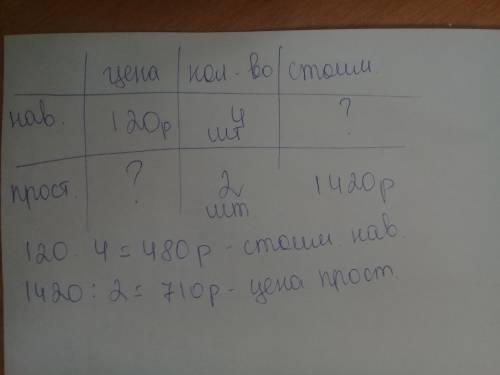 цена кол-во стоим.
нав. 120р 4 шт ?
прост. ? 2 шт. 1420р
120 · 4 = 480р - стоим. нав.
1420 : 2 = 710р - цена прост.